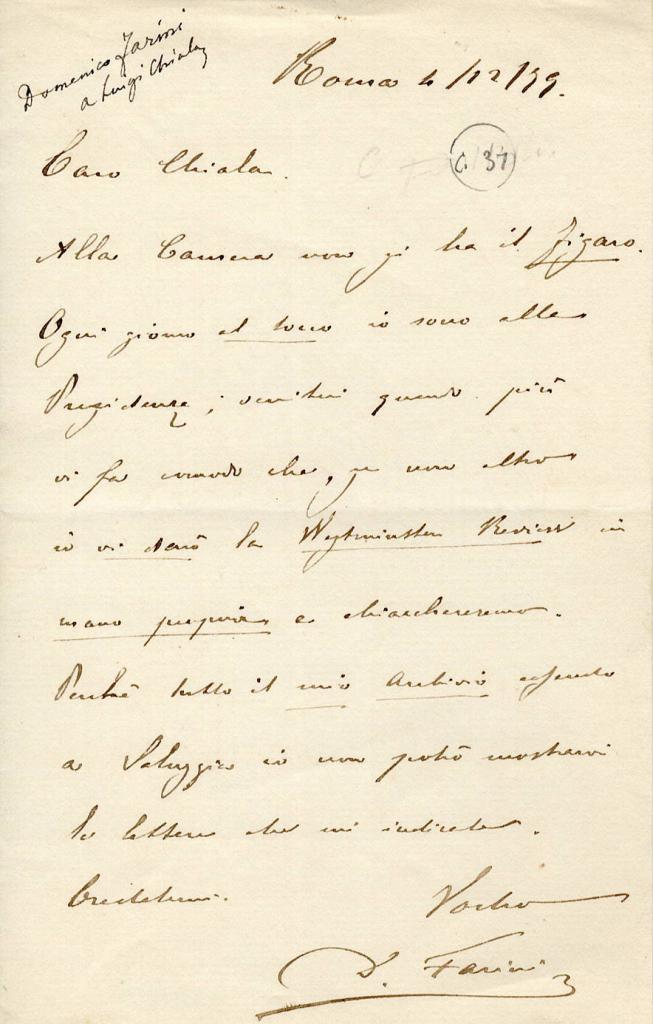 Domenico Farini
a Luigi Chiala
Roma 4/12/79.
Caro Chiala.
C. 37
Alla Camera non si ha il Figaro.
Ogni giorno al tocco io sono alla
Presidenza; venitevi quando più
vi fa comodo che, se non altro
io vi darò la Westminster Review in
mano propria e chiacchereremo.
Perchè tutto il mio archivio essendo
a Saluggia io non potrò mostrarvi
la lettera che mi indicate.
Credetemi.
Vostro
D. Farini